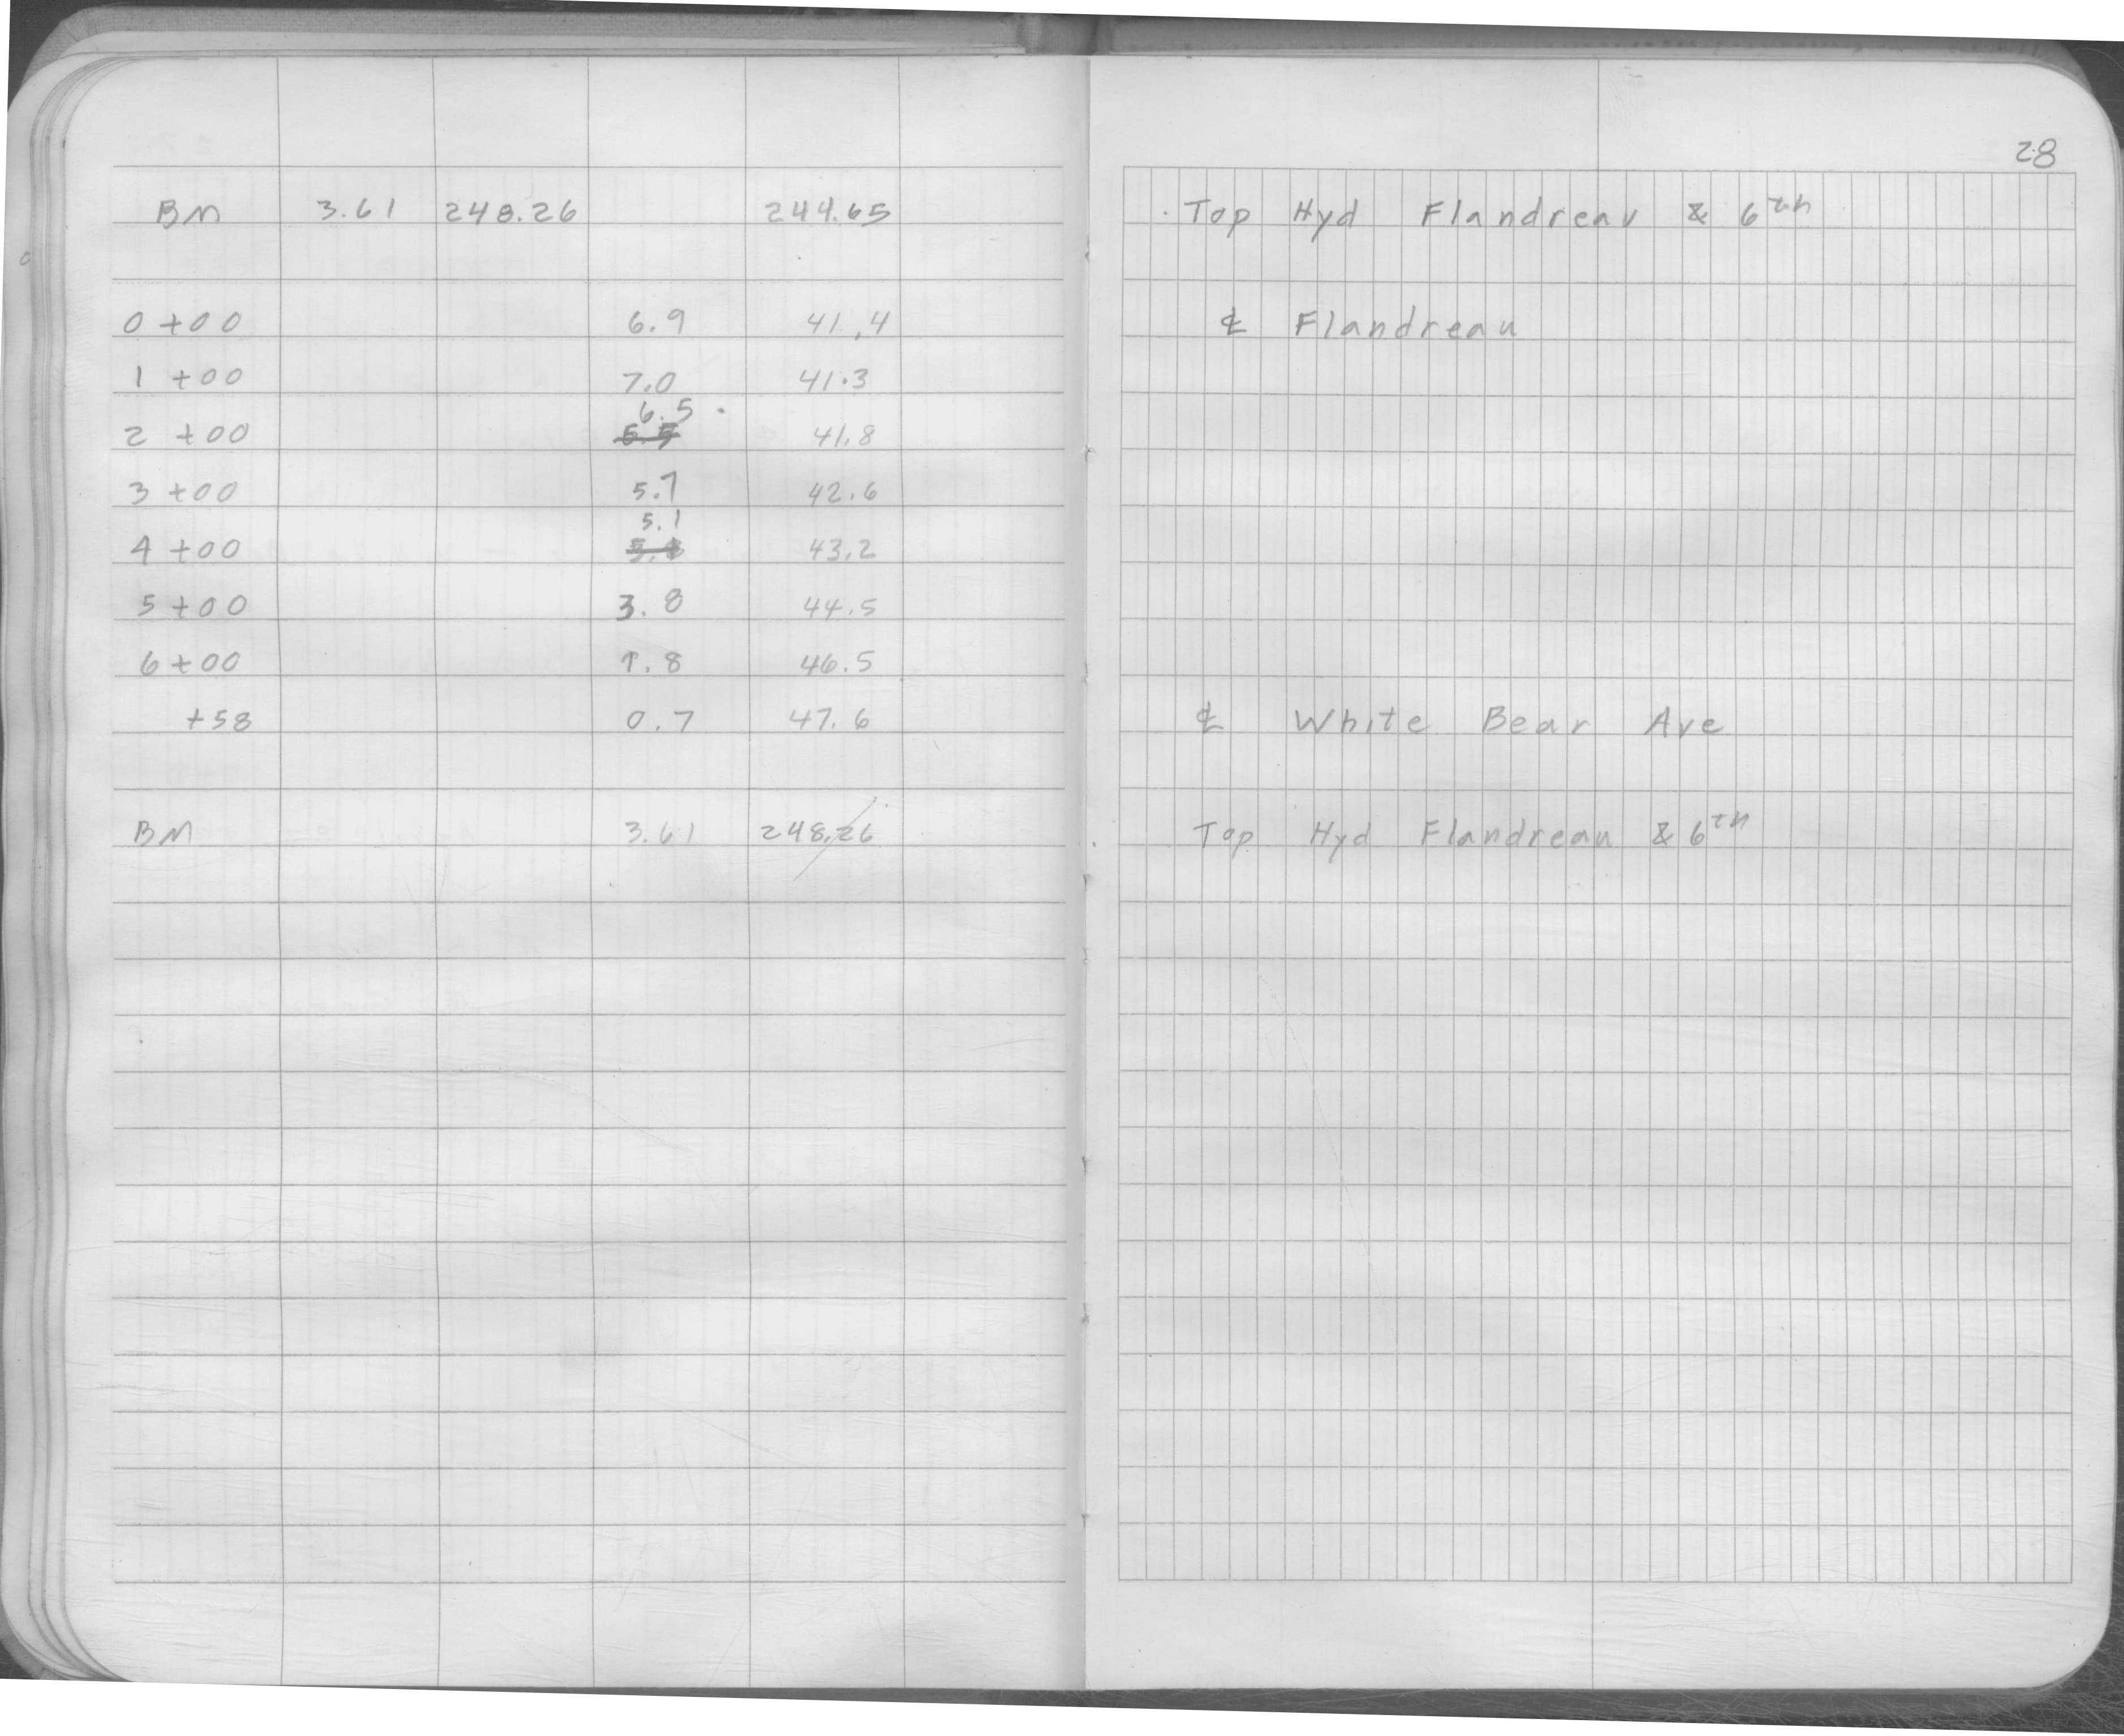 28
BM 3.61 248.26 244.65 Top Hyd Flandreau & 6th
0+00 6.9 41.4 ℄ Flandreau
1+00 7.0 41.3
6.5
2+00 5.5 41.8
3+00 5.7 42.6
5.1
4+00 43.2
5+00 3.8 44.5
6+00 1.8 46.5
+58 0.7 47.6 ℄ White Bear Ave
BM 3.61 248.26 Top Hyd Flandreau & 6th